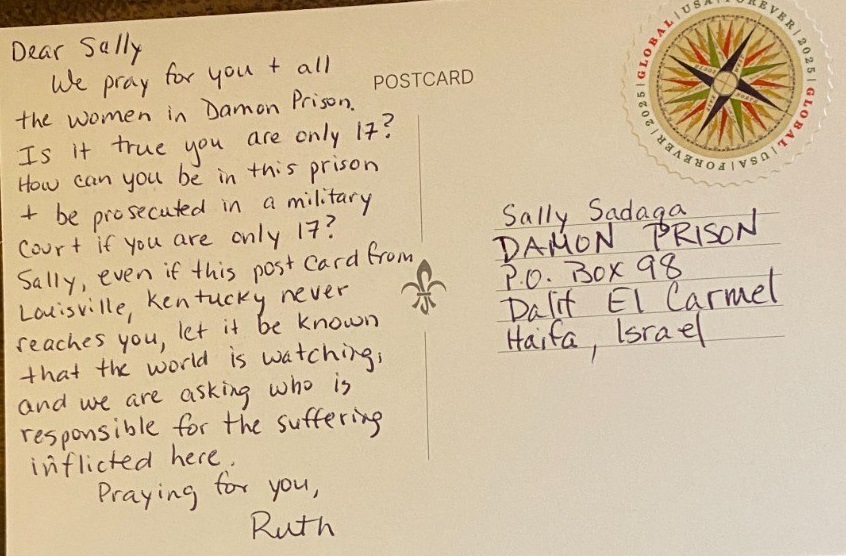 Dear Sally
We pray for you + all
the women in Damon Prison.
Is it true you are only 17?
How can you be in this prison
+ be prosecuted in a military
court if you are only 17?
Sally, even if this post card from
Louisville, Kentucky never
reaches you, let it be known
that the world is watching,
and we are asking who is
responsible for the suffering
inflicted here.
Praying for you,
Ruth
POSTCARD
GLOBAL | USA | FOREVER | 2025 | GLOBAL | USA | FOREVER | 2025 |
Sally Sadaqa
DAMON PRISON
P.O. BOX 98
Dalit El Carmel
Haifa, Israel